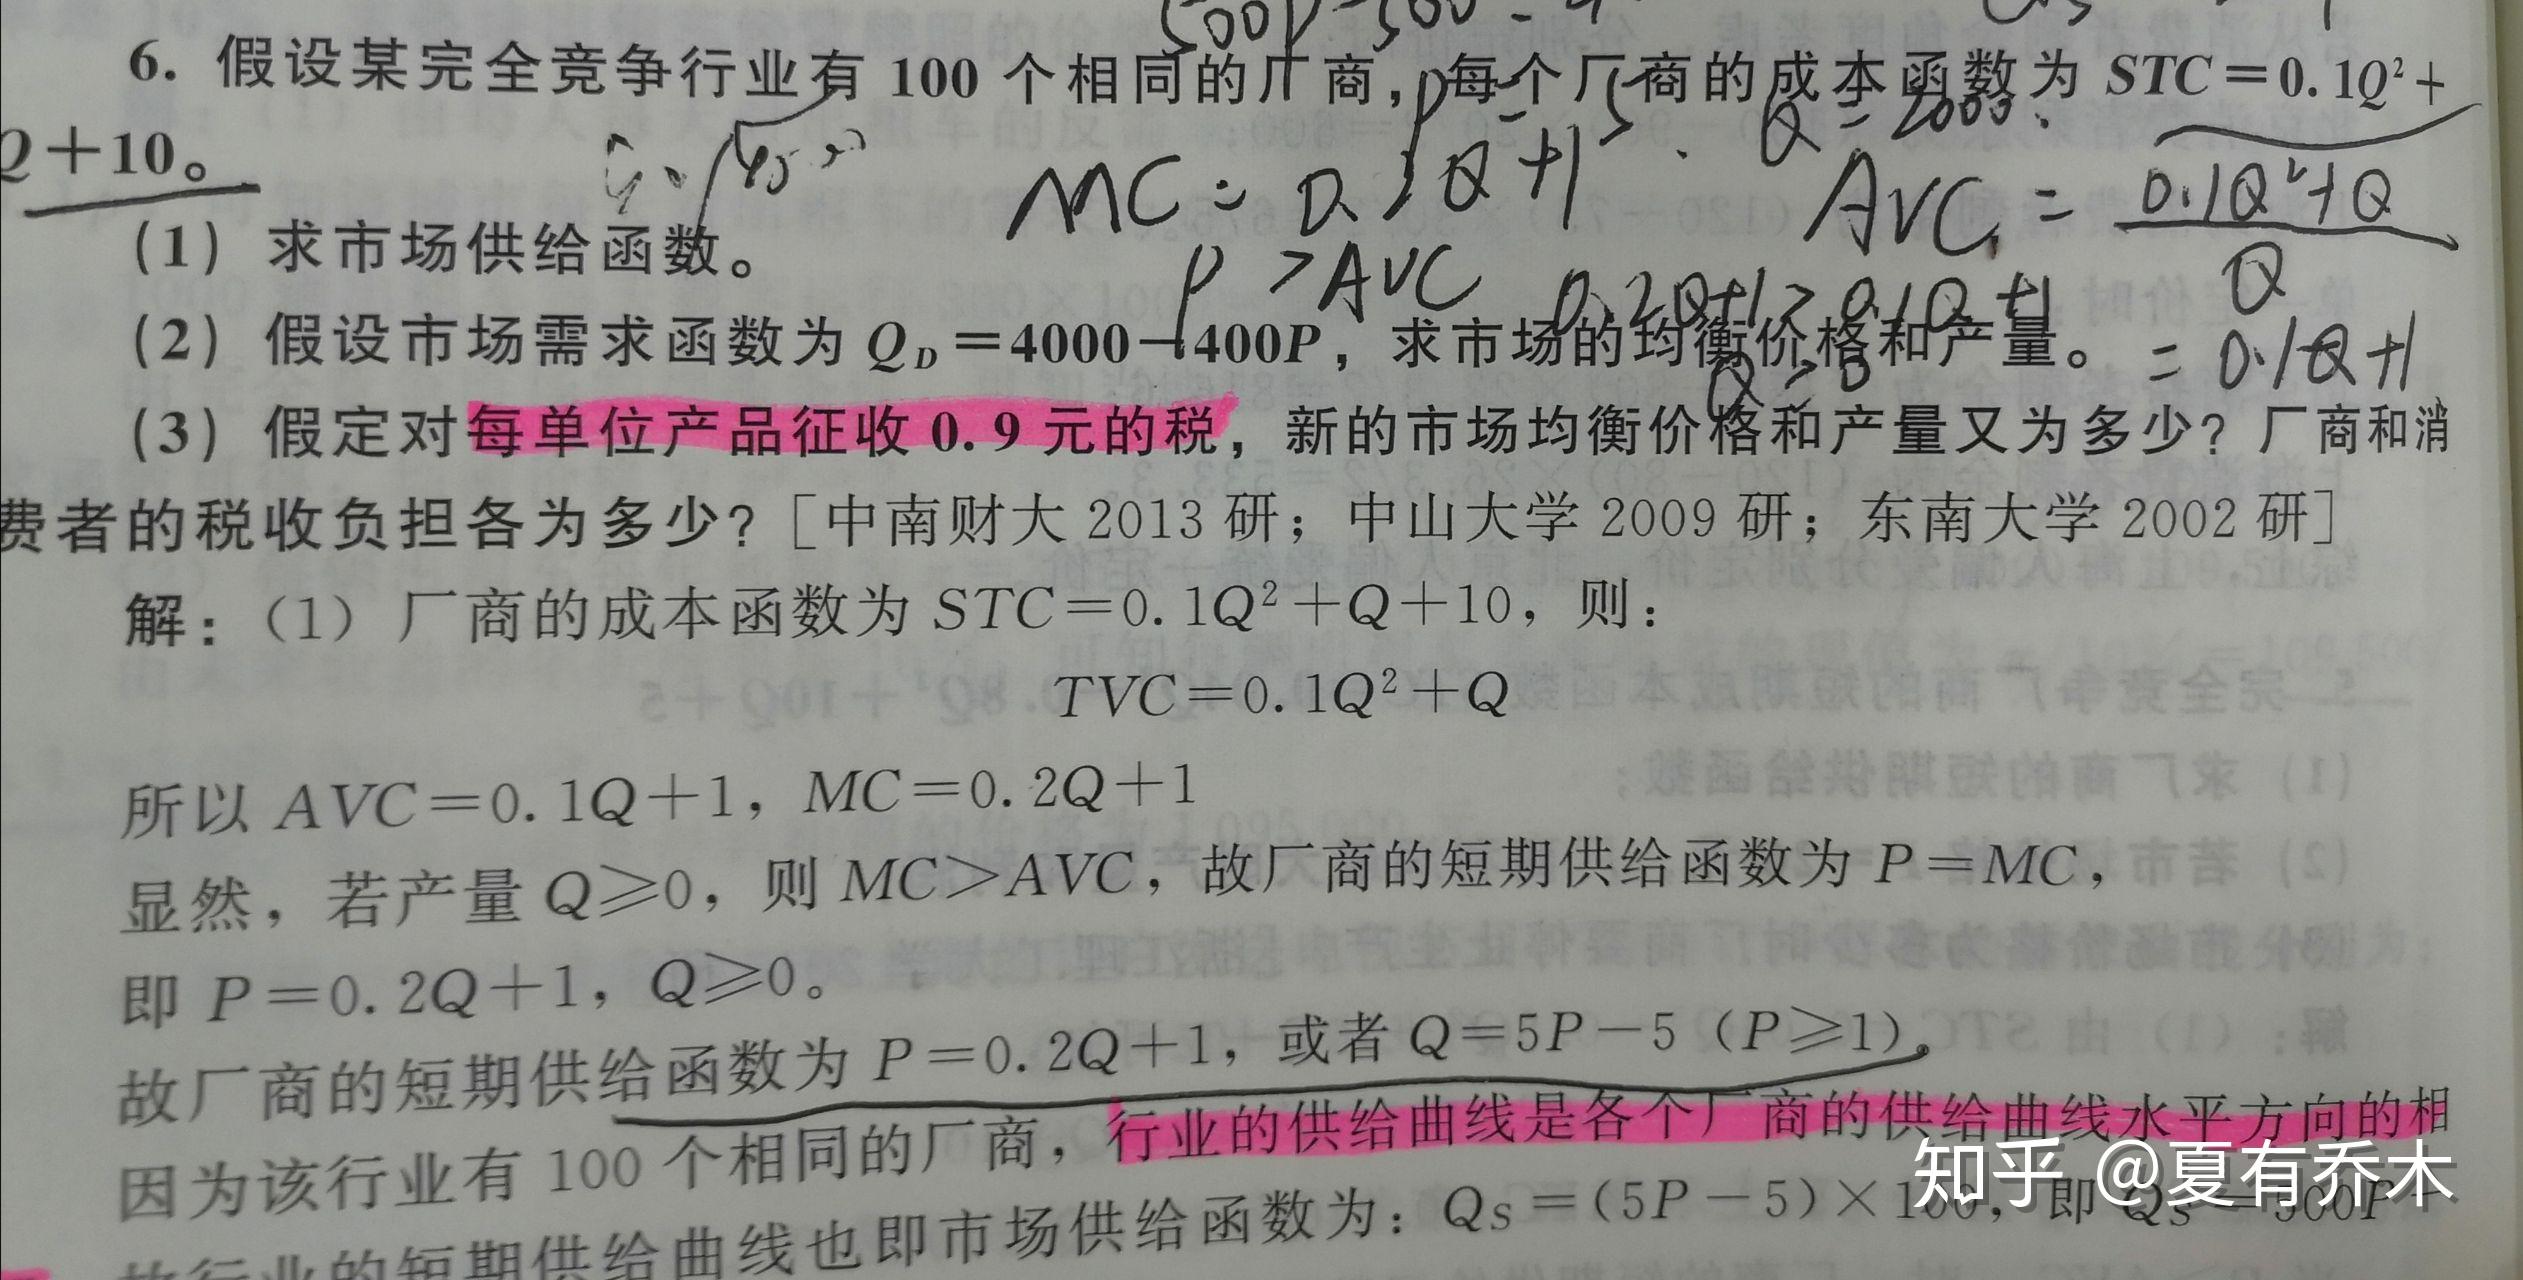 500P-500=4
6. 假设某完全竞争行业有 100 个相同的厂商，每个厂商的成本函数为 STC=0.1Q²+
Q+10。
P=5. Q=2000.
MC=0.2Q+1
AVC=
0.1Q²+Q
Q
(1) 求市场供给函数。
P>AVC 0.2Q+1>0.1Q+1
(2) 假设市场需求函数为 Q_D=4000-400P，求市场的均衡价格和产量。
=0.1Q+1
Q>0
(3) 假定对每单位产品征收 0.9 元的税，新的市场均衡价格和产量又为多少？厂商和消
费者的税收负担各为多少？[中南财大 2013 研；中山大学 2009 研；东南大学 2002 研]
解：(1) 厂商的成本函数为 STC=0.1Q²+Q+10，则：
TVC=0.1Q²+Q
所以 AVC=0.1Q+1，MC=0.2Q+1
显然，若产量 Q≥0，则 MC>AVC，故厂商的短期供给函数为 P=MC，
即 P=0.2Q+1，Q≥0。
故厂商的短期供给函数为 P=0.2Q+1，或者 Q=5P-5 (P≥1)。
因为该行业有 100 个相同的厂商，行业的供给曲线是各个厂商的供给曲线水平方向的相
故行业的短期供给曲线也即市场供给函数为：Q_S=(5P-5)×100，即 Q_S=500P-
知乎 @夏有乔木